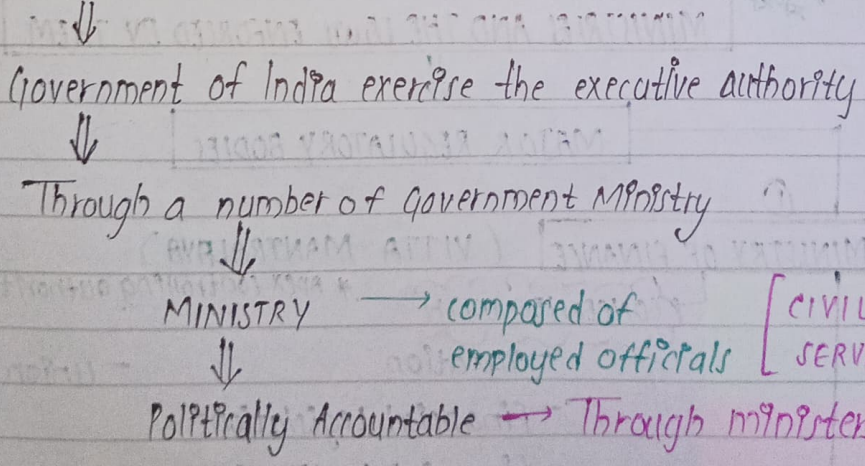 ⇓
Government of India exercise the executive authority
⇓
Through a number of Government Ministry
⇓
MINISTRY → composed of [CIVIL
employed officials [SERV
⇓
Politically Accountable → Through minister